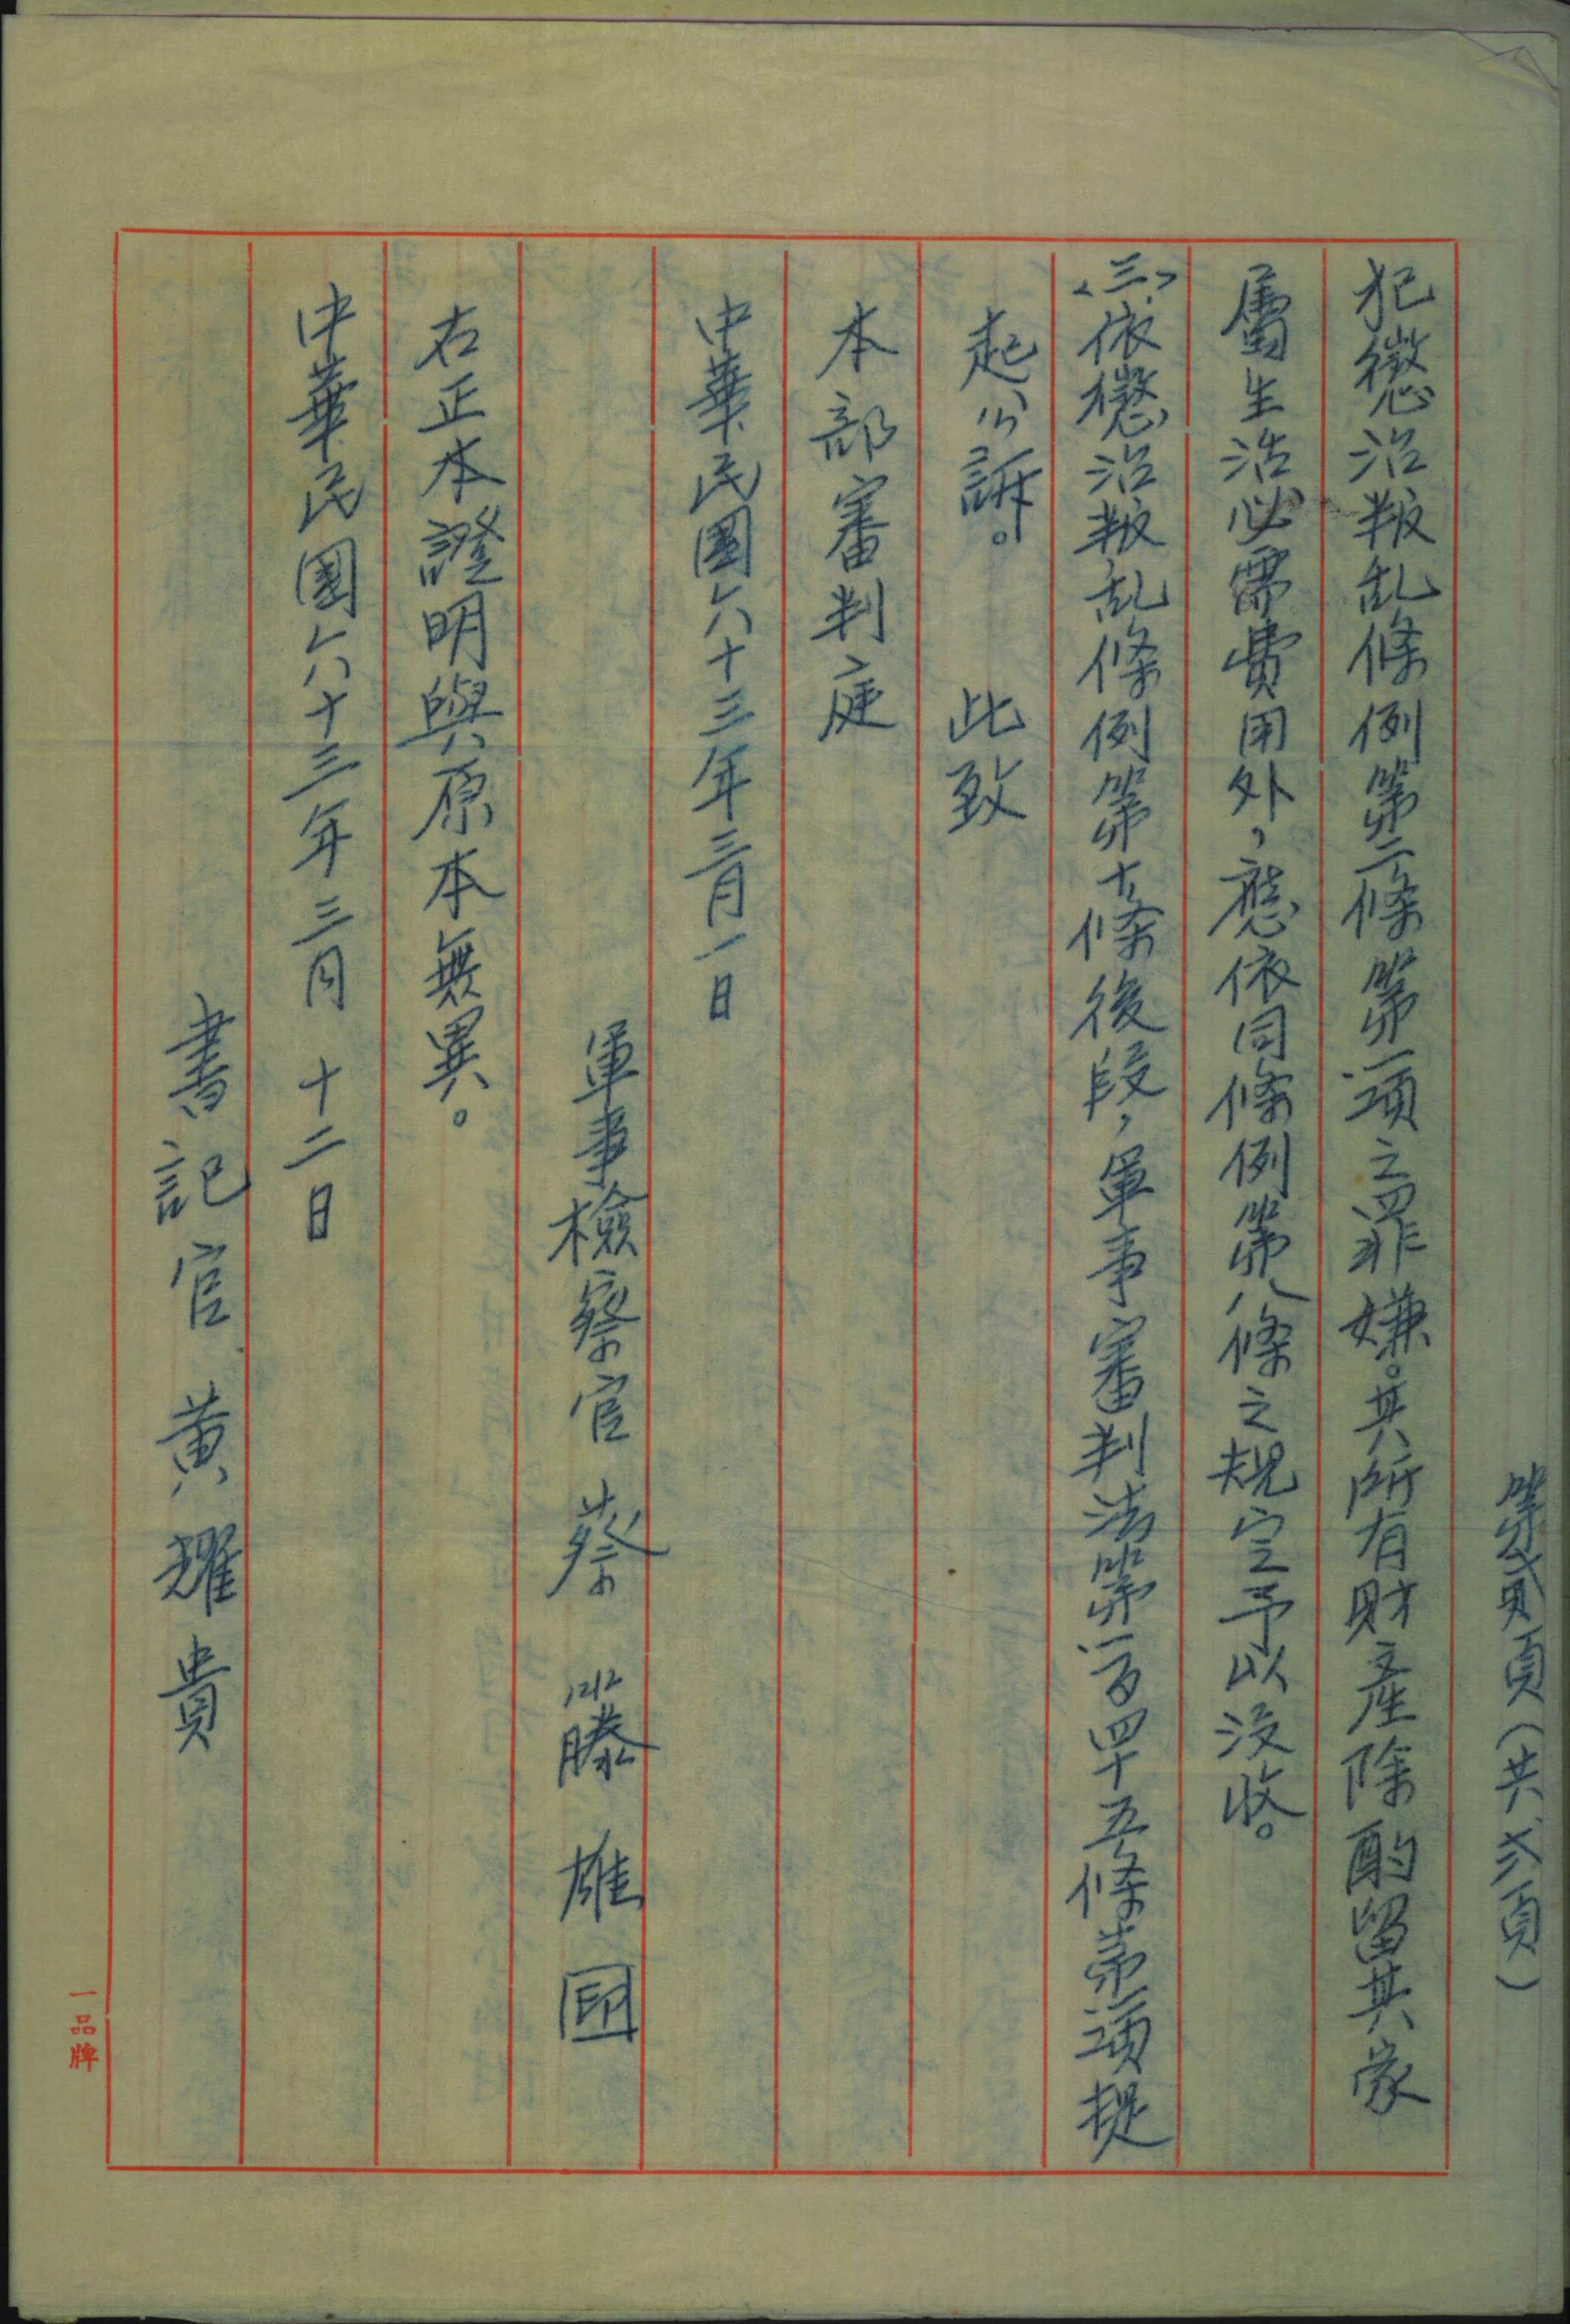 第貳頁(共貳頁)
犯懲治叛乱條例第二條第一項之罪嫌。其所有財產除酌留其家
屬生活必需費用外,應依同條例第八條之規定予以沒收。
<三>依懲治叛乱條例第十條後段,軍事審判法第一百四十五條第一項提
起公訴。 此致
本部審判庭
中華民國六十三年三月一日
軍事檢察官 蔡籐雄 印
右正本證明與原本無異。
中華民國六十三年三月 十二日
書記官 黃耀貴
一品牌